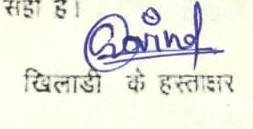 सही है।
Govind
खिलाडी के हस्ताक्षर